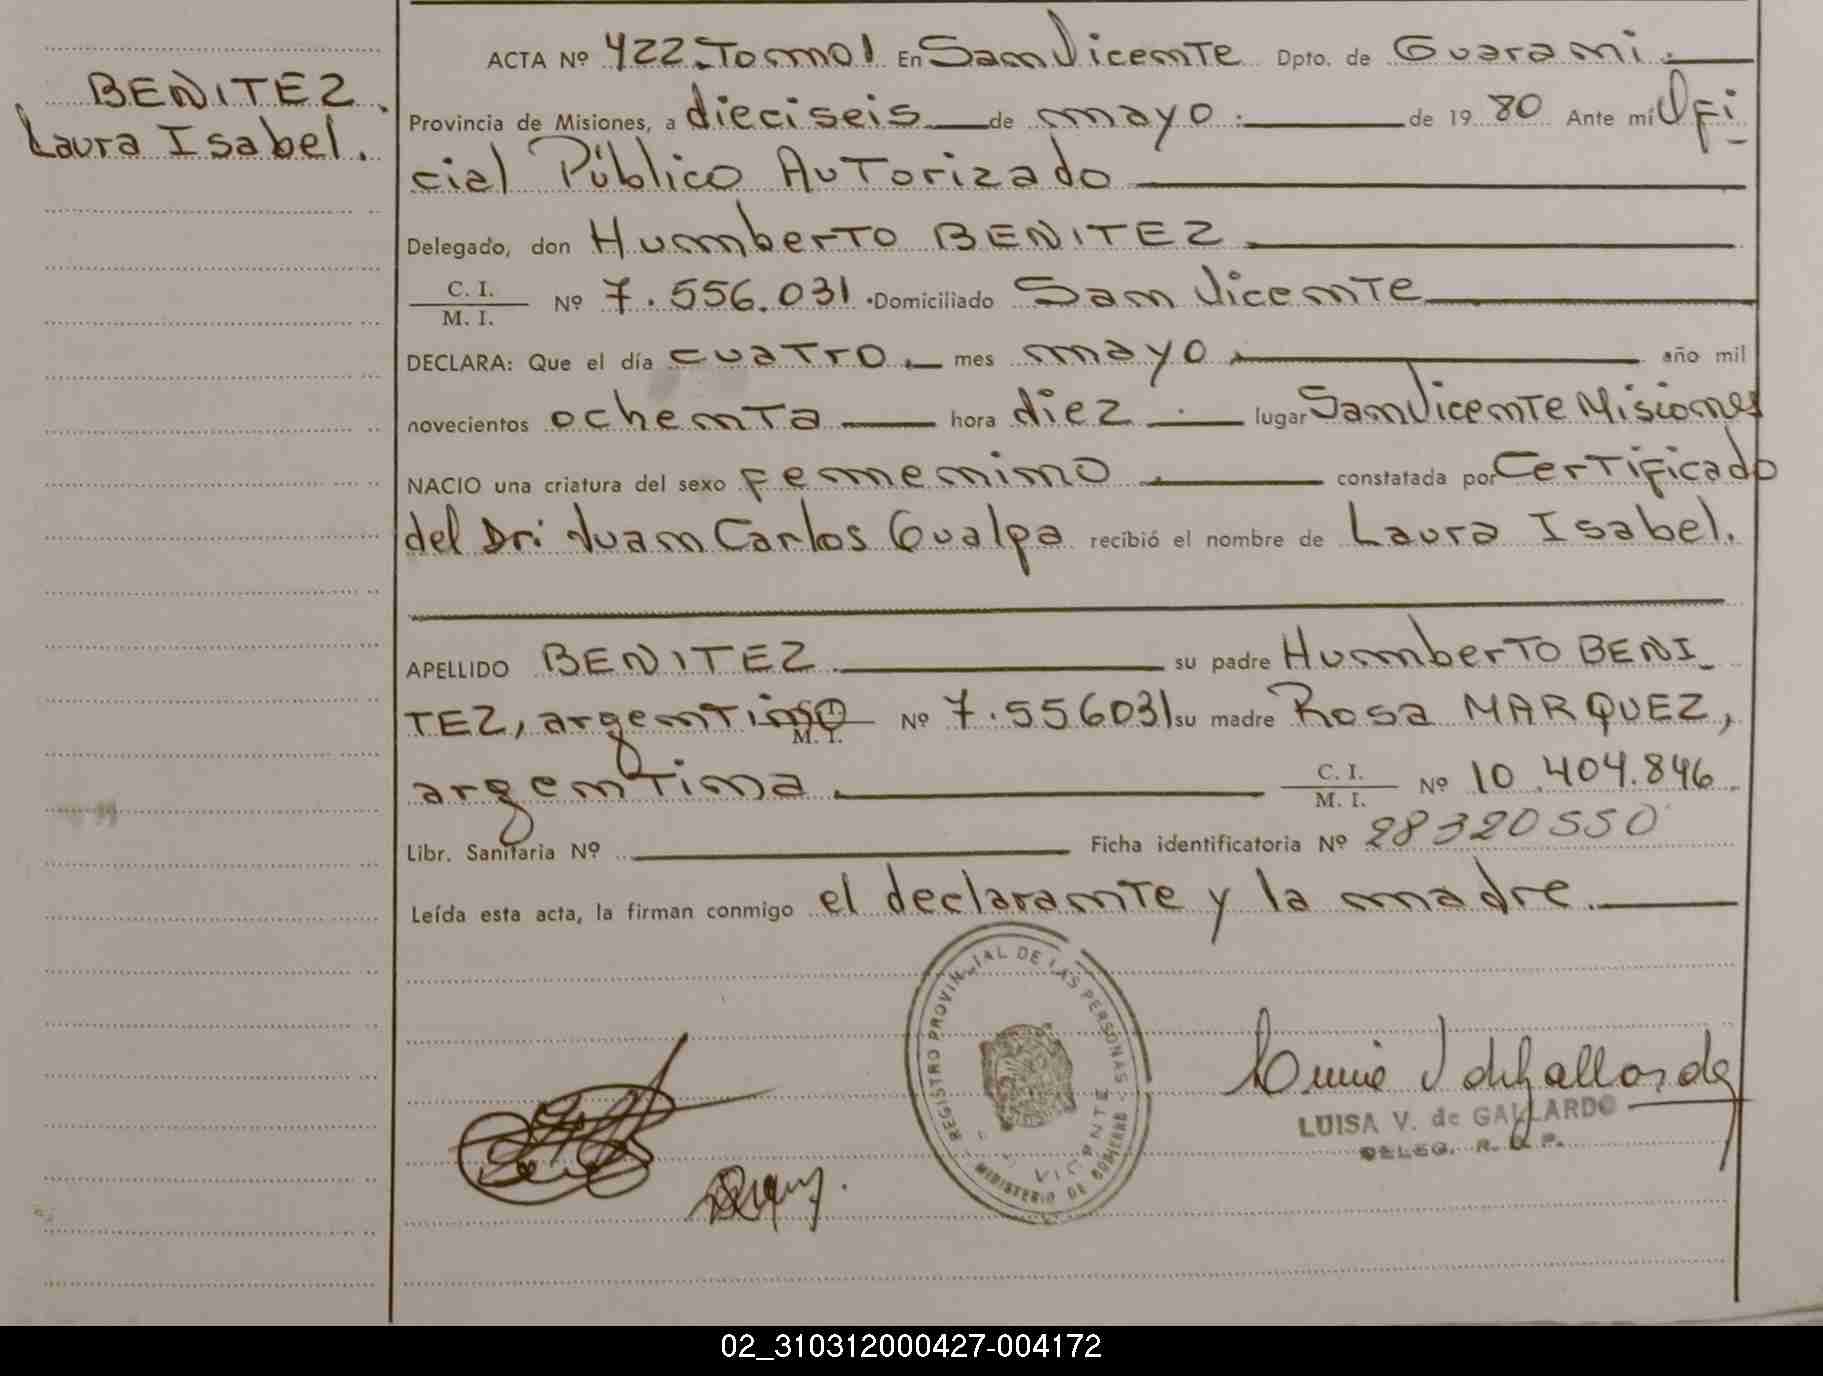 BENITEZ
Laura Isabel.
ACTA Nº 422.Tomo1 En San Vicente Dpto. de Guarani.
Provincia de Misiones, a dieciseis de mayo. de 19 80 Ante mí Ofi
cial Público Autorizado
Delegado, don Humberto BENITEZ
C. I.
M. I. Nº 7.556.031 Domiciliado San Vicente
DECLARA: Que el día cuatro mes mayo año mil
novecientos ochenta hora diez lugar San Vicente Misiones
NACIO una criatura del sexo femenino constatada por Certificado
del Dr: Juan Carlos Gualpa recibió el nombre de Laura Isabel.
APELLIDO BENITEZ su padre Humberto BENI_
TEZ, argentino M. I. Nº 7.556031 su madre Rosa MARQUEZ,
argentina C. I.
M. I. Nº 10.404.846
Libr. Sanitaria Nº Ficha identificatoria Nº 28320550
Leída esta acta, la firman conmigo el declarante y la madre.
REGISTRO PROVINCIAL DE LAS PERSONAS
MINISTERIO DE GOBIERNO
VICENTE
LUISA V. de GALLARDO
DELEG. R. P. P.
02_310312000427-004172